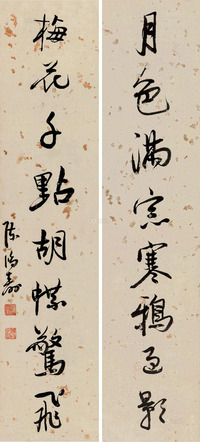 月色滿窓寒鴉過影
梅花千點胡蝶驚飛
陳鴻壽